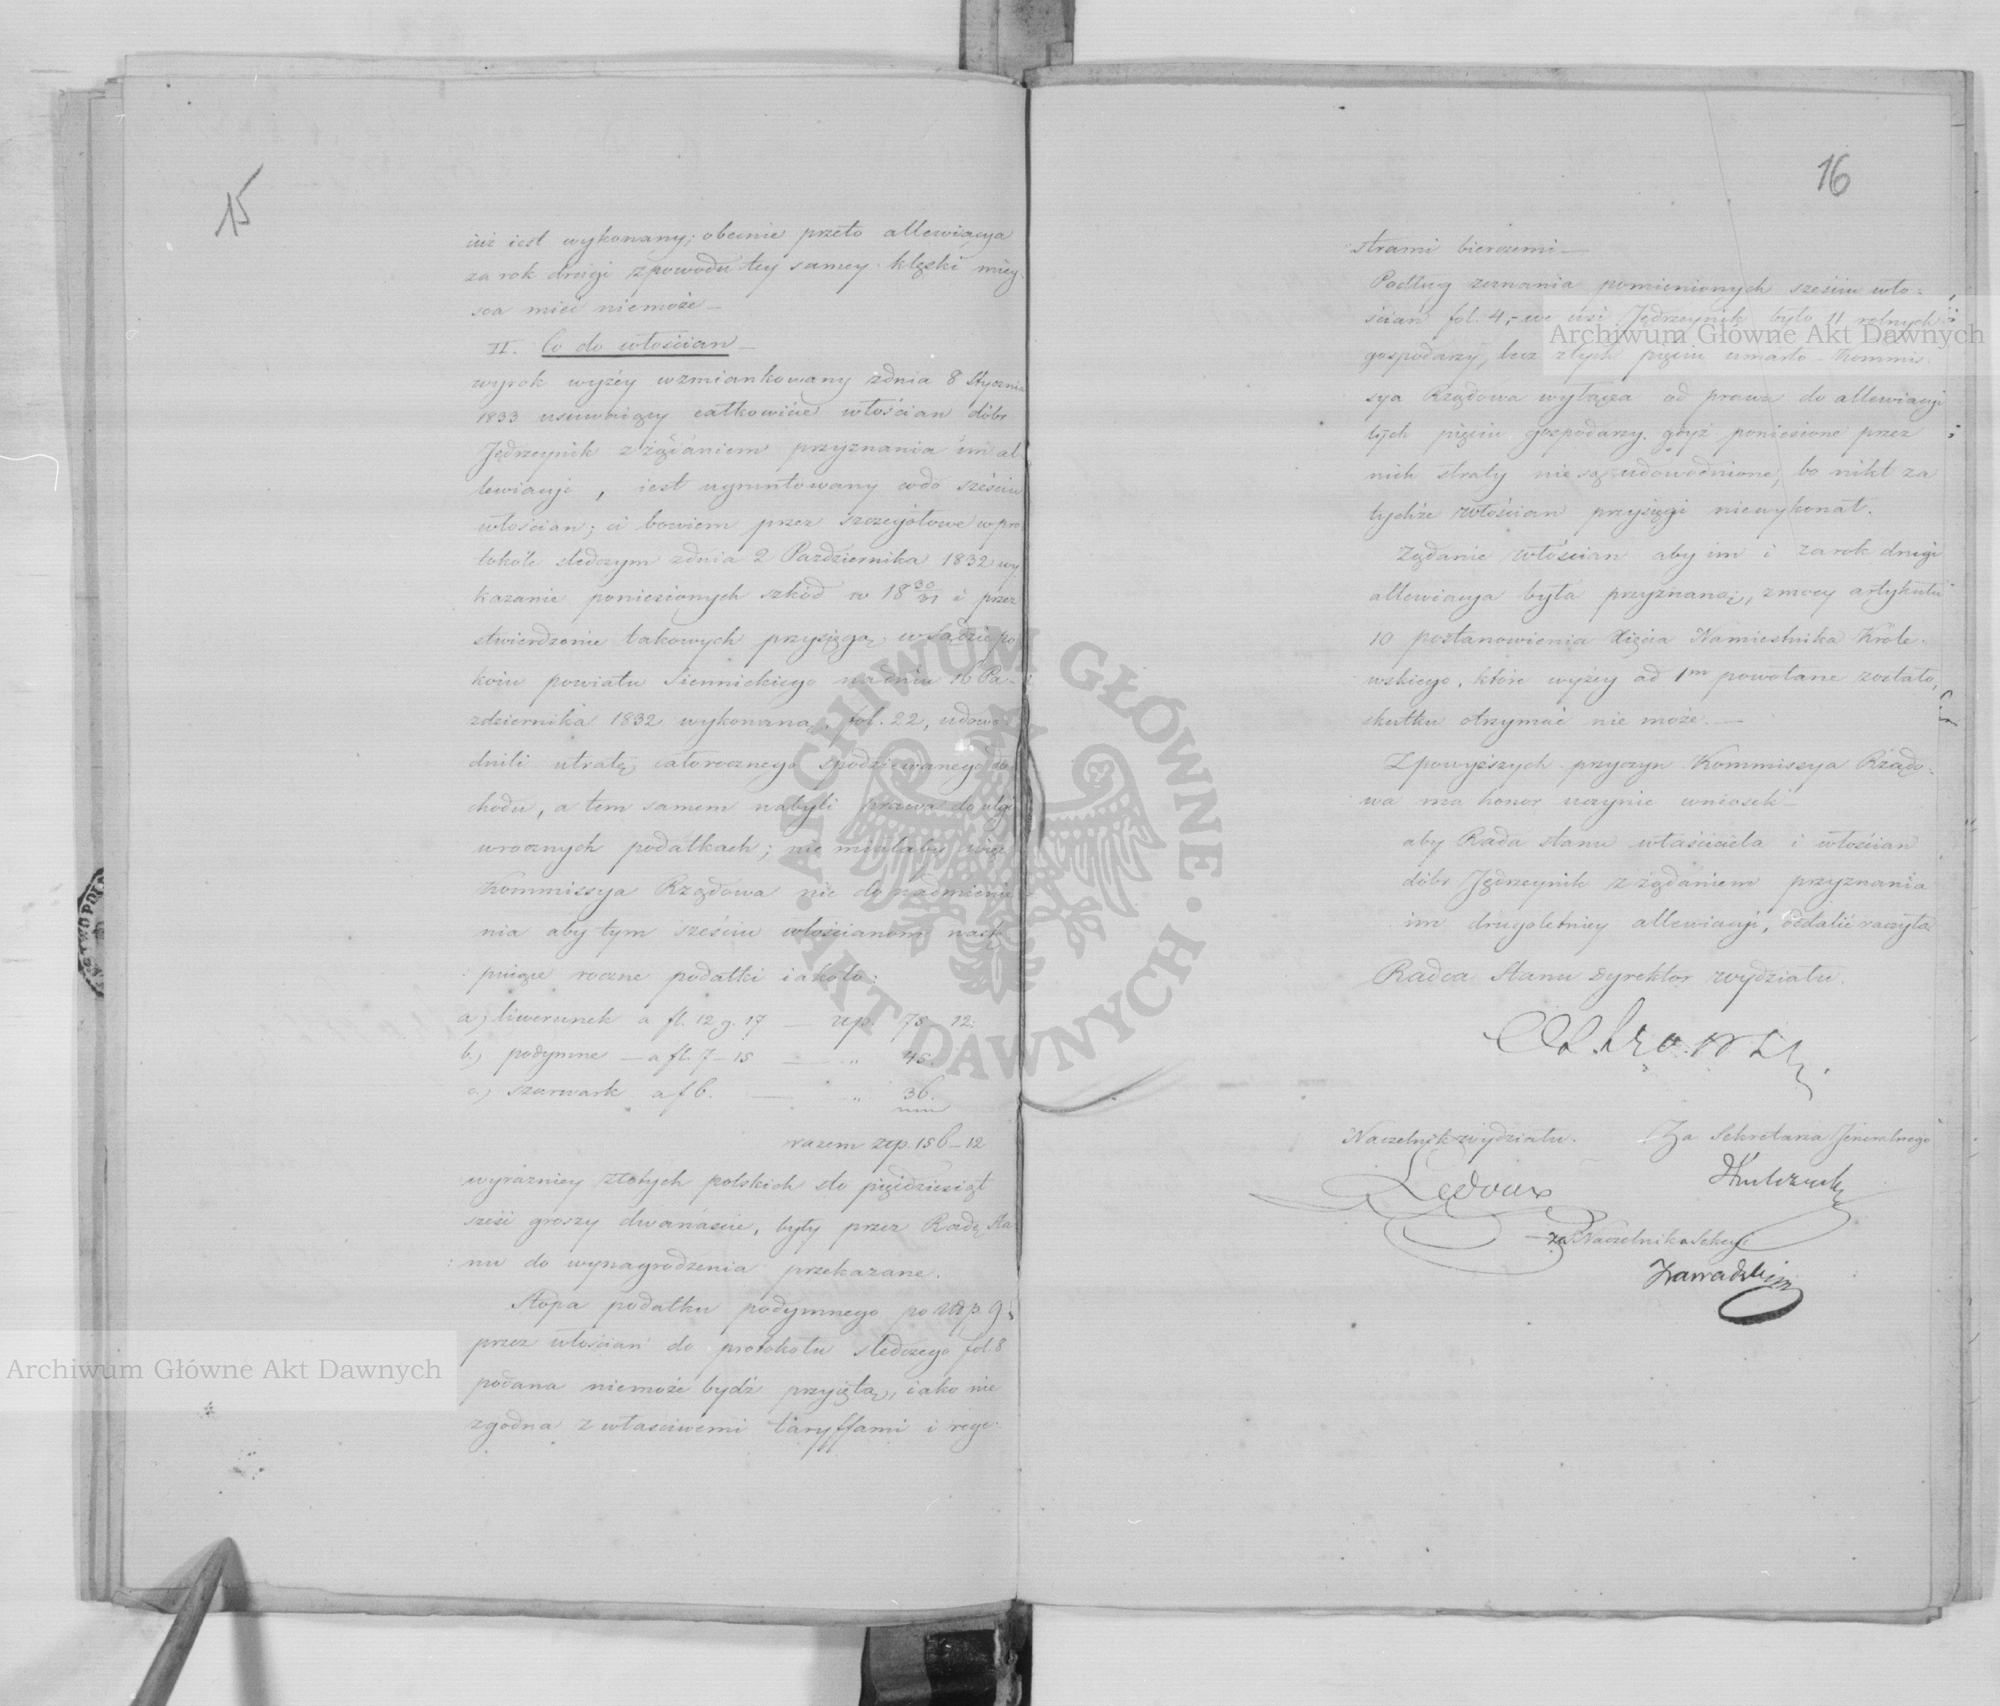 15
iuż iest wykonany; obecnie przeto allewiacya
za rok drugi z powodu tey samey klęski miey-
sca mieć niemoże —
II. Co do włościan —
wyrok wyżéy wzmiankowany z dnia 8 Stycznia
1833 usuwaiący całkowicie włościan dóbr
Jędrzeynik z żądaniem przyznania im al-
lewiacyi, iest ugruntowany co do sześciu
włościan; ci bowiem przez szczegółowe w pro
tokóle śledczym z dnia 2 Października 1832 wy
kazanie poniesionych szkód w 18 30/31 i przez
stwierdzenie takowych przysięgą, w Sądzie po
koiu powiatu Siennickiego na dniu 16 Pa-
ździernika 1832 wykonaną, fol. 22, udowo
dnili utratę całorocznego spodziewanego do
chodu, a tem samem nabyli prawa do ulgi
w rocznych podatkach; nie miałaby więc
Kommissya Rządowa nic do nadmienie
nia aby tym sześciu włościanom nastę
puiące roczne podatki iako to:
a) liwerunek a fl. 12 g. 17 — złp. 75 12.
b) podymne — a fl. 7-15 — „ 45.
c) szarwark a f 6. — „ 36.
razem złp. 156-12
wyraźniey złotych polskich sto pięćdziesiąt
sześć groszy dwanaście, były przez Radę Sta
nu do wynagrodzenia przekazane.
Stopa podatku podymnego po złp. 9
przez włościan do protokołu śledczego fol. 8
podana niemoże bydź przyiętą, iako nie
zgodna z właściwemi taryffami i reye-
16
strami bierczemi —
Podług zeznania pomienionych sześciu wło-
ścian fol. 4, we wsi Jędrzeynik było 11 rolnych
gospodarzy, lecz z tych pięciu umarło. Kommis-
sya Rządowa wyłącza od prawa do allewiacyi
tych pięciu gospodarzy, gdyż poniesione przez
nich straty nie są udowodnione, bo nikt za
tychże włościan przysięgi niewykonał.
Żądanie włościan aby im i za rok drugi
allewiacya była przyznaną, z mocy artykułu
10 postanowienia Xięcia Namiestnika Króle-
wskiego, które wyżéy ad 1m powołane zostało,
skutku otrzymać nie może. —
Z powyższych przyczyn Kommissya Rządo-
wa ma honor uczynić wniosek —
aby Rada Stanu właściciela i włościan
dóbr Jędrzeynik z żądaniem przyznania
im drugoletniey allewiacyi, oddalić raczyła.
Radca Stanu Dyrektor wydziału.
Naczelnik wydziału.
Za Sekretarza Jeneralnego
Ledoux
za Naczelnika Sekcyi
Zawadzki
Archiwum Główne Akt Dawnych
Archiwum Główne Akt Dawnych
ARCHIWUM GŁÓWNE · AKT DAWNYCH ·